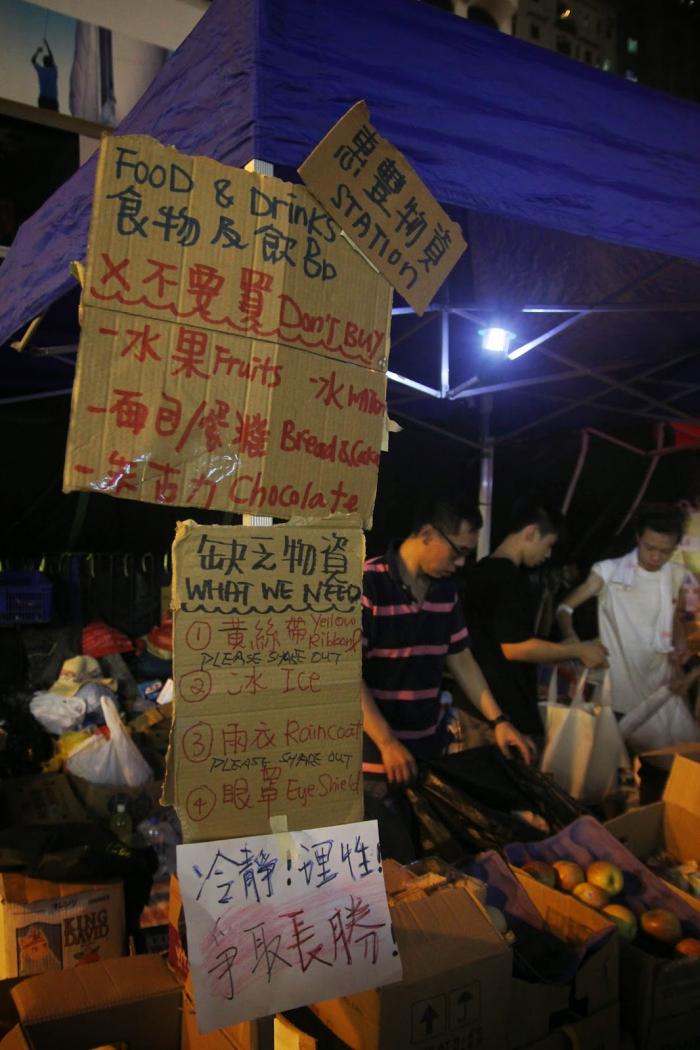 FOOD & Drinks
食物及飲品
豐物資
STATION
X不要買 Don't Buy
-水果Fruits -水 water
-面包/蛋糕 Bread &
-朱古力 Chocolate
缺乏物資
WHAT WE NEED
① 黃絲帶 Yellow Ribbon
PLEASE SHARE OUT
② 冰 Ice
③ 雨衣 Raincoat
PLEASE SHARE OUT
④ 眼罩 Eye Shield
冷靜!理性!
爭取長勝!
KING
DAVID